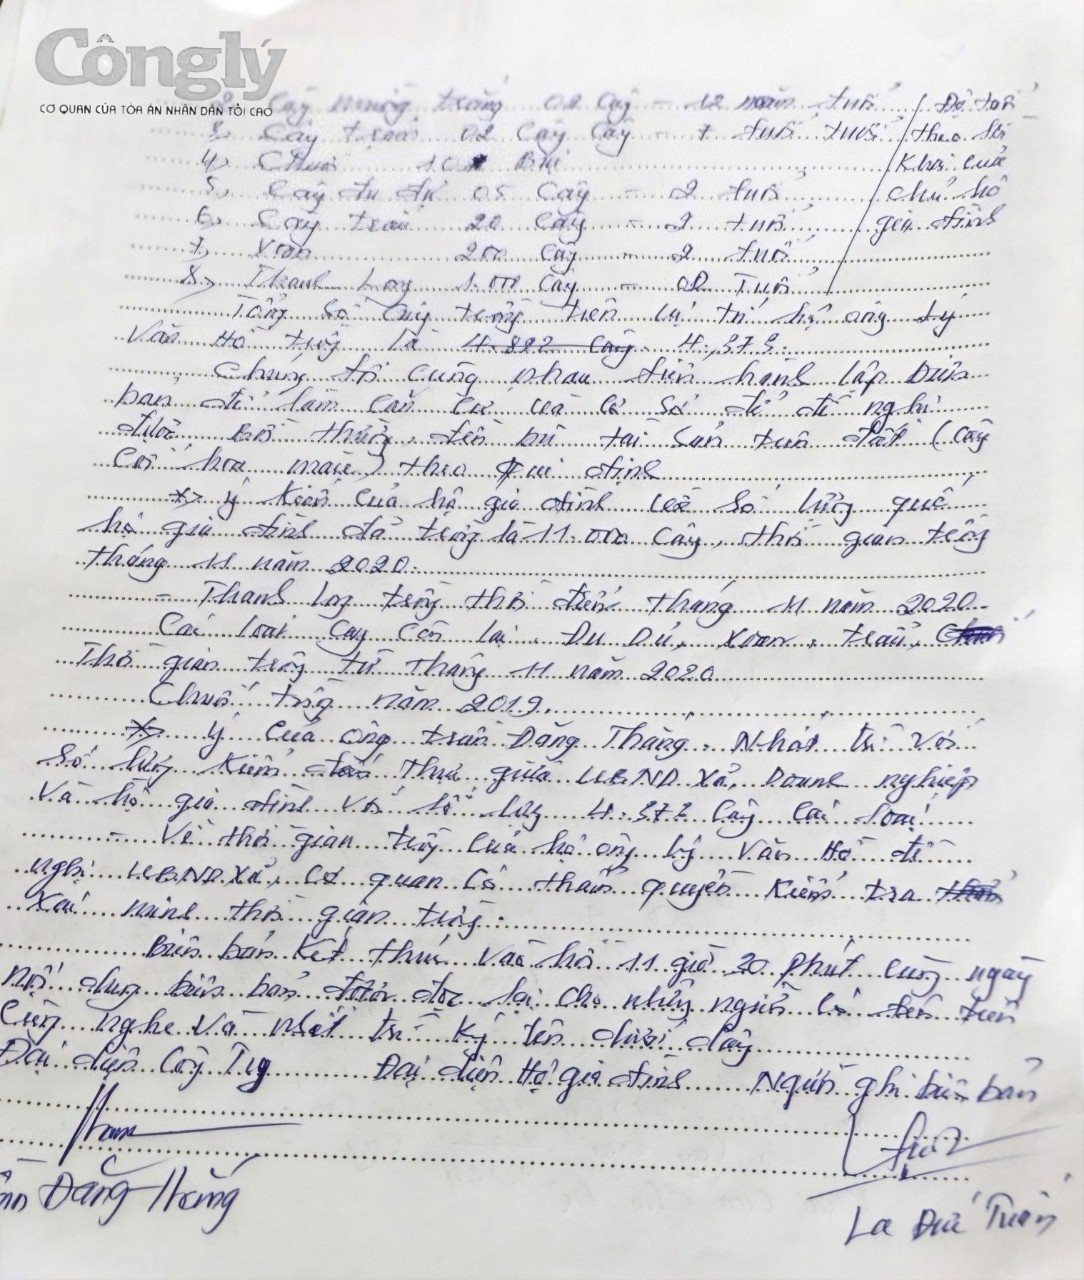 Công lý
CƠ QUAN CỦA TÒA ÁN NHÂN DÂN TỐI CAO
Cây trồng 02 Cây - 12 năm tuổi Độ tuổi
3, Cây 02 Cây Cây - 7 tuổi tuổi theo lời
4, Chuối 10 Bụi Khai của
5, Cây đu đủ 05 Cây - 2 tuổi chủ hộ
6, Cây trẩu 20 Cây - 2 tuổi gia đình
7, Xoan 200 Cây - 2 tuổi
8, Thanh Long 1.000 Cây - 02 Tuổi
Tổng số Cây trồng trên tại hộ ông Lý
Văn Hồ trồng là 4.373.
Chúng tôi cùng nhau tiến hành lập biên
bản để làm căn cứ và cơ sở để đề nghị
được Bồi thường, đền bù tài sản trên đất (Cây
Cối hoa màu) theo qui định
*> Ý Kiến của hộ gia đình về số lượng quế
hộ gia đình đã trồng là 11.000 Cây, thời gian trồng
tháng 11 năm 2020.
- Thanh Long trồng thời điểm tháng 11 năm 2020
Các loại Cây Còn lại. Đu Đủ, Xoan, trẩu,
Thời gian trồng từ Tháng 11 năm 2020
Chuối trồng năm 2019.
*> Ý Của ông trần Đăng Thắng. Nhất trí Với
Số lượng Kiểm đếm Thực giữa UBND Xã, Doanh nghiệp
Và hộ gia đình với số lượng 4.373 Cây Các loại
- Về thời gian trồng của hộ ông Lý Văn Hồ đề
nghị UBND Xã, Cơ quan Có thẩm quyền Kiểm tra
Xác minh thời gian trồng.
Biên bản Kết thúc Vào hồi 11 giờ 20 phút Cùng ngày
Nội dung biên bản được đọc lại Cho những người Có tên trên
Cùng Nghe Và nhất trí Ký tên dưới đây
Đại diện Công Ty Đại diện Hộ gia đình Người ghi biên bản
Đăng Thắng
La Đức Tuấn